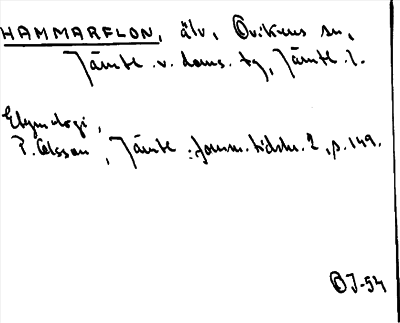 HAMMARFLON, älv, Ovikens sn,
Jämtl. v. doms. tg, Jämtl. l.
Etymologi,
P. Olsson, Jämtl. fornm. tidskr. 2, p. 149.
OJ-54